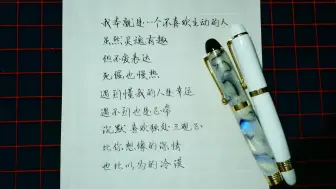 我本就是一个不喜欢主动的人
虽然灵魂有趣
但不爱表达
无偏也慢热
遇到懂我的人是幸运
遇不到也是正常
沉默喜欢独处三观正
比你想像的深情
也比以为的冷漠